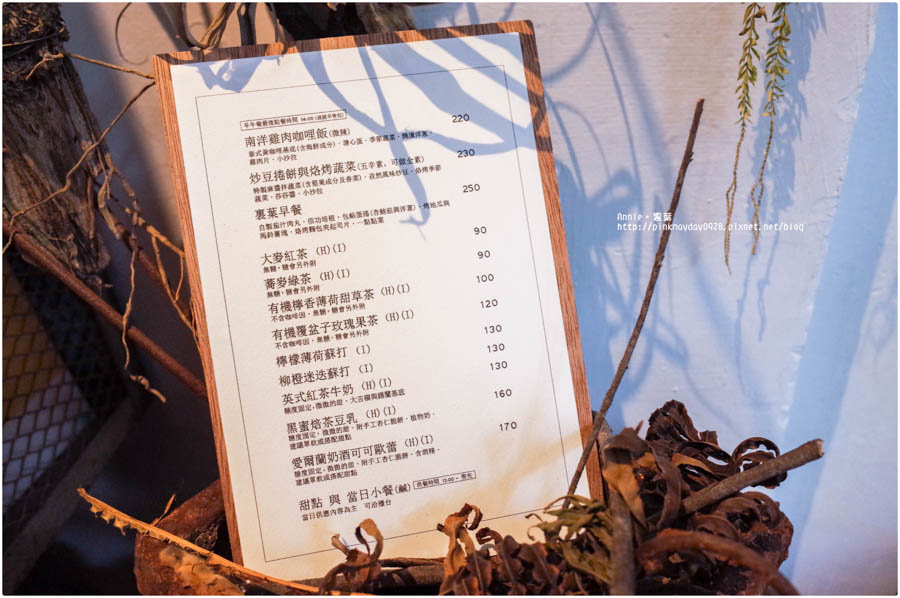 早午餐最後點餐時間 14:00 (或提早售完)
南洋雞肉咖哩飯(微辣) 220
泰式黃咖哩基底(含海鮮成分)、溏心蛋、季節蔬菜、醃漬洋蔥、
雞肉片、小沙拉
炒豆捲餅與烙烤蔬菜(五辛素，可做全素) 230
特製麻醬拌蔬菜(含堅果成分及香菜)、孜然風味炒豆、烙烤季節
蔬菜、莎莎醬、小沙拉
裏葉早餐 250
自製茄汁肉丸、培根、包餡蛋捲(杏鮑菇與洋蔥)、烤地瓜與
馬鈴薯塊、烙烤麵包夾起司片、一點點菜
大麥紅茶 (H)(I) 90
無糖，糖會另外附
蕎麥綠茶 (H)(I) 90
無糖，糖會另外附
有機檸香薄荷甜草茶 (H)(I) 100
不含咖啡因，無糖，糖會另外附
有機覆盆子玫瑰果茶 (H)(I) 120
不含咖啡因，無糖，糖會另外附
檸檬薄荷蘇打 (I) 130
柳橙迷迭蘇打 (I) 130
英式紅茶牛奶 (H)(I) 130
糖度固定，微微的甜、大吉嶺與錫蘭基底
黑蜜焙茶豆乳 (H)(I) 160
糖度固定，微微的甜、附手工杏仁脆餅、植物奶、
建議單飲或搭配甜點
愛爾蘭奶酒可可歐蕾 (H)(I) 170
糖度固定，微微的甜、附手工杏仁脆餅、含酒精、
建議單飲或搭配甜點
甜點 與 當日小餐(鹹) 供餐時間 13:00 - 售完
當日供應內容為主 可洽櫃台
http://pinkmayday0928.pixnet.net/blog